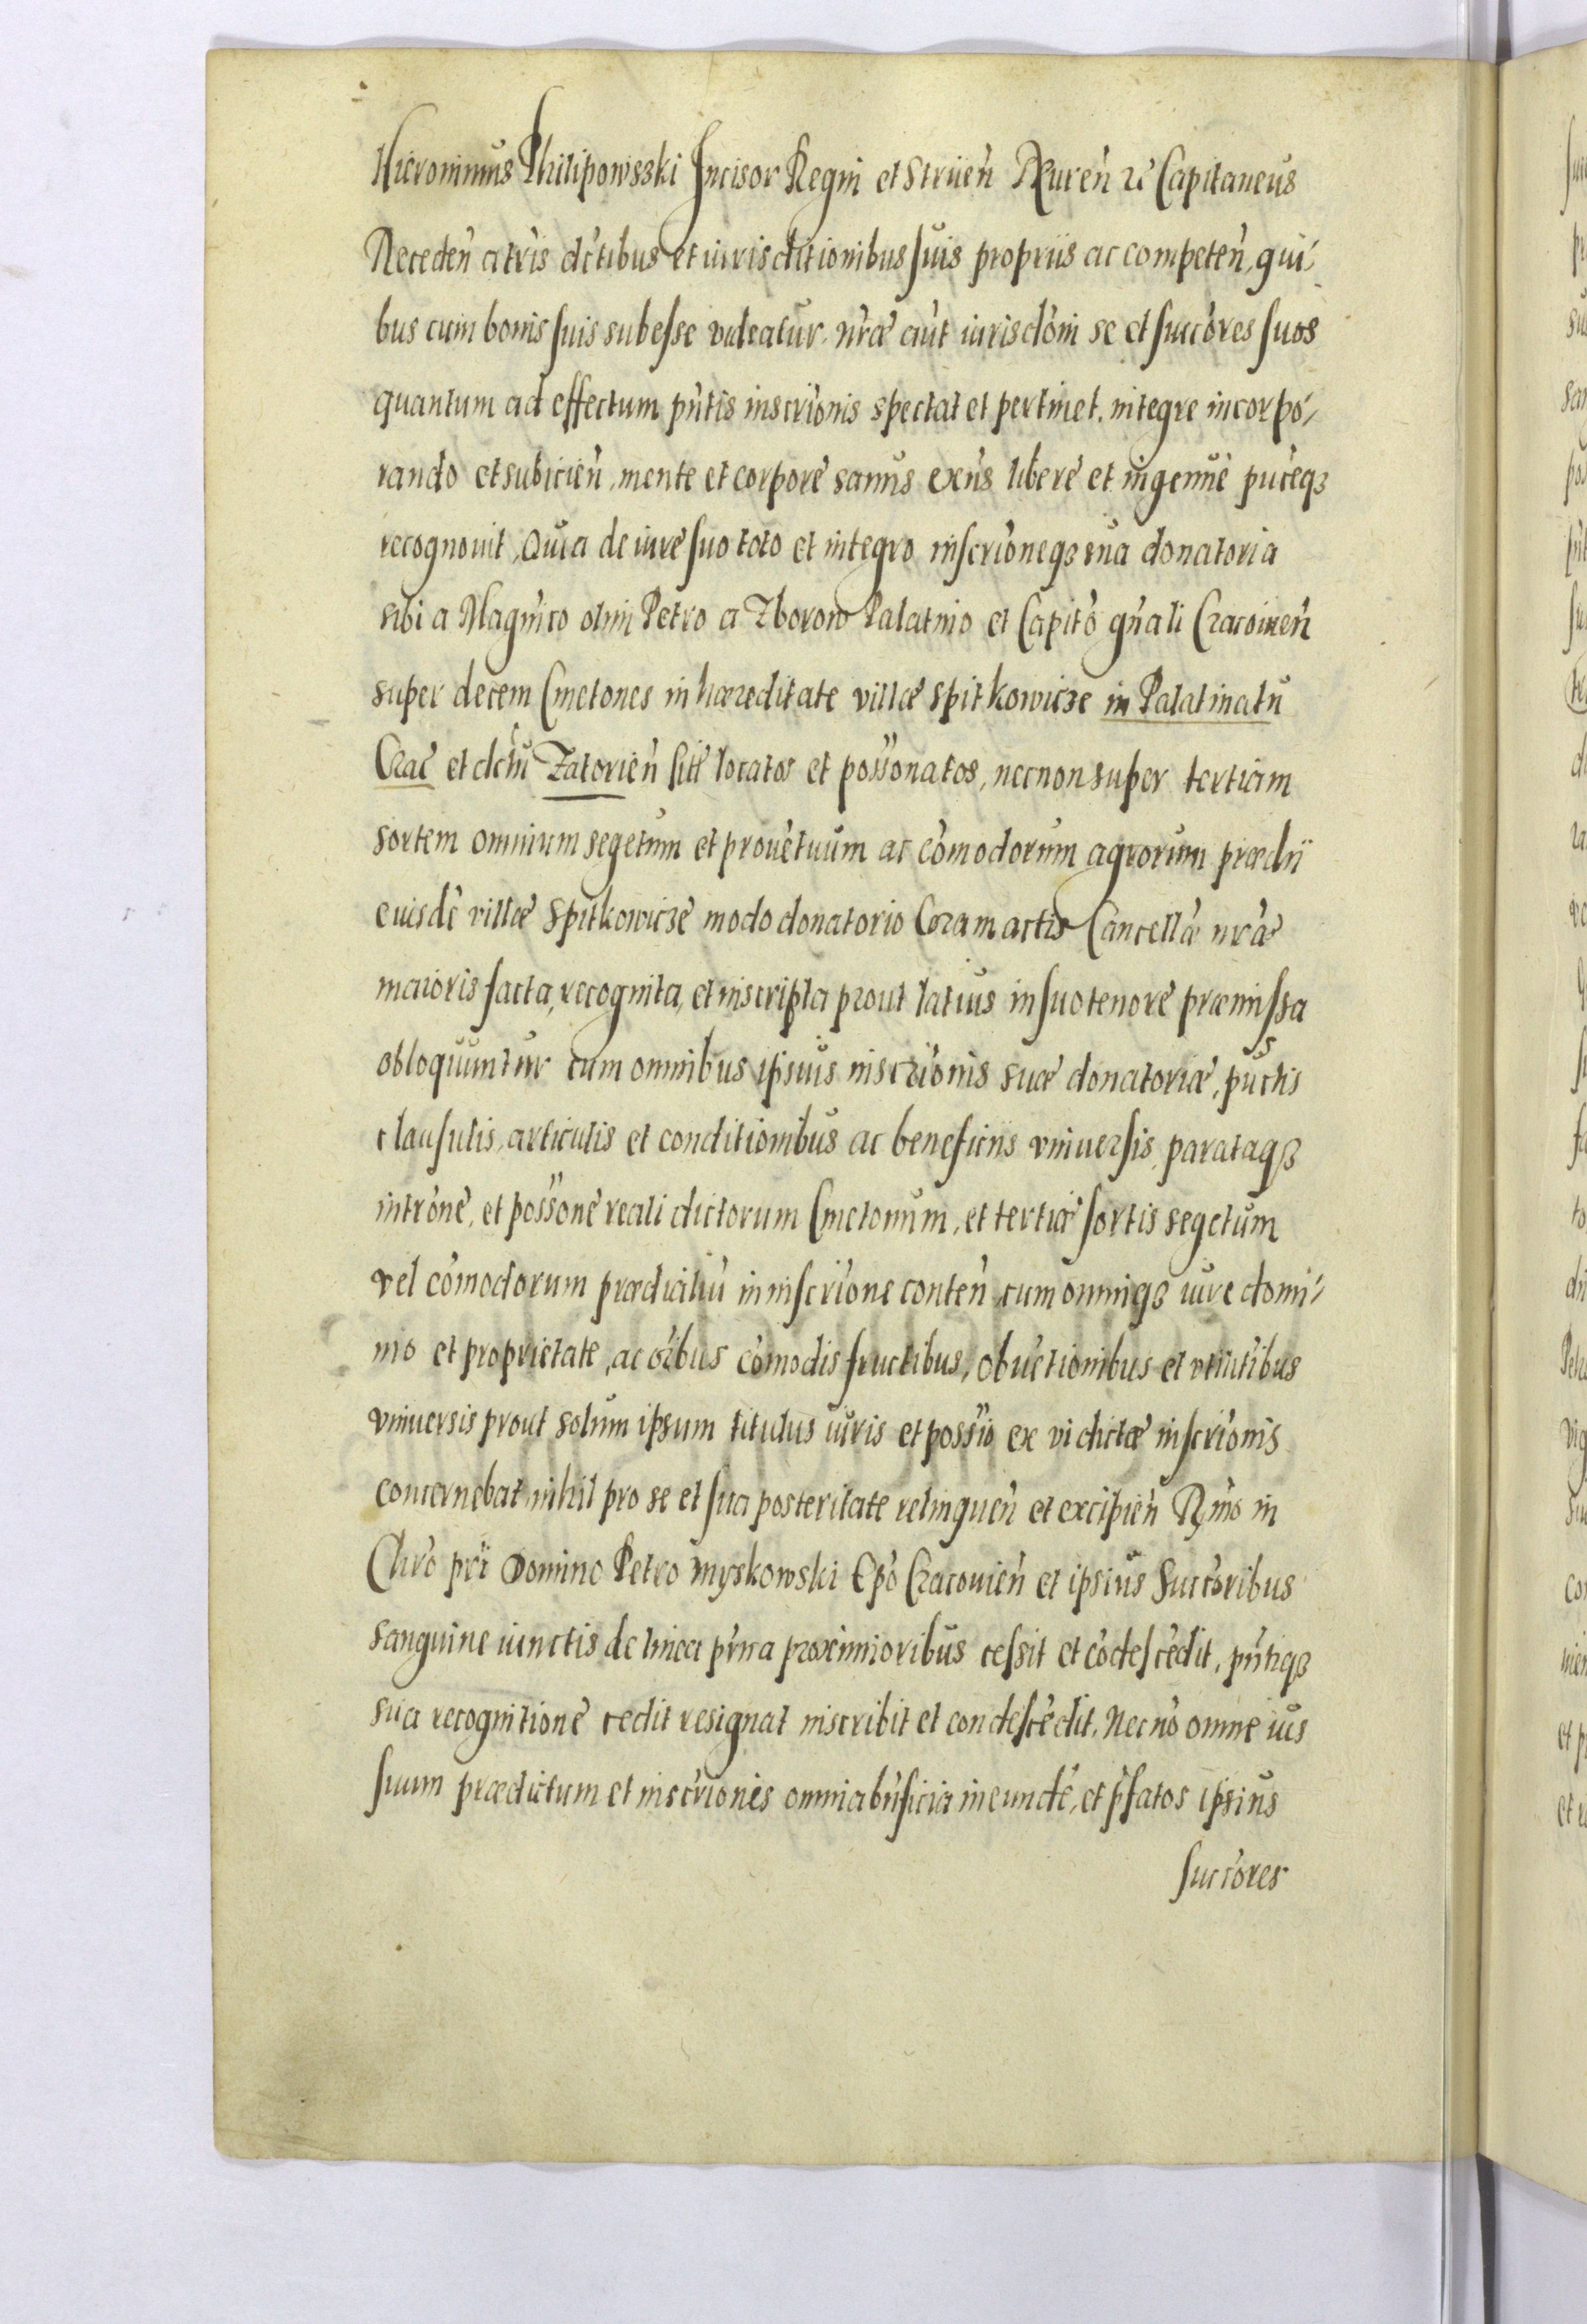 Hieronimus Philipowsski Incisor Regni et Striień Rc Capitaneus
Receden̄ a tr̄is dc̄tibus et iurisditionibus suis propriis ac competen̄, qui⸗
bus cum bonis suis subesse videatur, nr̄æ aūt iurisdōni se et succōres suos
quantum ad effectum pn̄tis inscrīonis spectat et pertinet, integre incorpo⸗
rando et subicien̄, mente et corpore sanus exn̄s libere et ingenuè pūceqꝫ
recognouit, Quia de iure suo toto et integro inscrīoneqꝫ sua donatoria
sibi a Magn̄ico olim Petro a Zborow Palatino et Capitō gn̄ali Cracouien̄
super decem Cmetones in hæreditate villæ Spitkowicze in Palatinatu
Crac̄ et dc̄tu Zatorien̄ sitæ locatos et poss̄onatos, necnon super tertiam
sortem omnium segetum et prouētuum ac cōmodorum agrorum prædii
eiusdē villæ Spitkowicze modo donatorio Coram actis Cancellā nr̄æ
maioris facta, recognita, et inscripta prout latius in suo tenore præmissa
obloquuntur cum omnibus ipsius inscrīonis suæ donatoriæ, pūctis
clausulis, articulis et conditionibus ac beneficiis vniuersis, parataqꝫ
intrōne, et poss̄one reali dictorum Cmetonum, et tertiæ sortis segetum
vel cōmodorum prædialiū in inscrīone conten̄ cum omniqꝫ iure domi⸗
nio et proprietate, ac oībus cōmodis fructibus, obuētionibus et vtilītibus
vniuersis prout solum ipsum titulus iuris et possīo ex vi dictæ inscrīonis
concernebat, nihil pro se et sua posteritate relinquen̄ et excipien̄ Rm̄o in
Chrō pr̄i Domino Petro Myskowski Ep̄o Cracouien̄ et ipsius Succōribus
sanguine iunctis de linea pr̄na proximioribus cessit et cōdescēdit, pn̄tiqꝫ
sua recognitione cedit resignat inscribit et condescēdit. Necnō omne ius
suum prædictum et inscrīonis omnia bn̄ficia in eundē, et p̄fatos ipsius
succōres